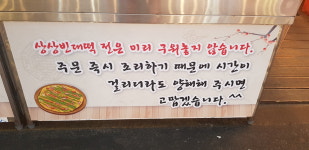 상상빈대떡 전은 미리 구워놓지 않습니다.
주문 즉시 조리하기 때문에 시간이
걸리더라도 양해해 주시면
고맙겠습니다.^^